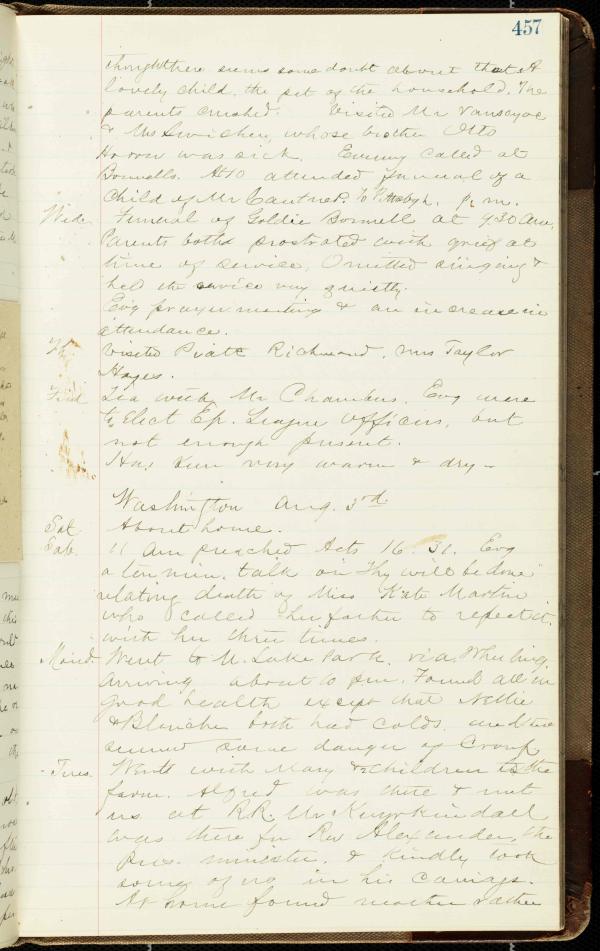 457
thought there seems some doubt about that. A
lovely child, the pet of the household. The
parents crushed. Visited Mr Vansayoc
& Mrs Swicher, whose brother Otto
was sick. Evening called at
Bonnells. At 10 attended funeral of a
child of Mr Cantner. to Pittsbgh. p. m.
Wed. Funeral of Goldie Bonnell at 9.30 Am.
Parents both prostrated with grief at
time of service. Omitted singing &
held the service very quietly.
Evg prayer meeting & an increase in
attendance.
Th Visited Piatt Richmond, Mrs Taylor
Hayes.
Frid Tea with Mr Chambers. Evg were
to Elect Ep. League officers, but
not enough present.
Has been very warm & dry -
Washington Aug. 3rd
Sat About home.
Sab. 11 Am preached Acts 16. 31. Evg
a ten min. talk on "Thy will be done"
relating death of Miss Kate Martin
who called her father to repeat it
with her three times.
Mond. Went to M. Lake Park. via Wheeling.
Arriving about 10 pm. Found all in
good health except that Nettie
& Blanche both had colds. and there
seemed some danger of Croup
Tues. Went with Mary & children to the
farm. Alfred was there & met
us at RR. Mr Kuyrkindall
was there for Rev Alexander, the
Pres. minister, & kindly took
some of us in his carriage.
At home found mother rather